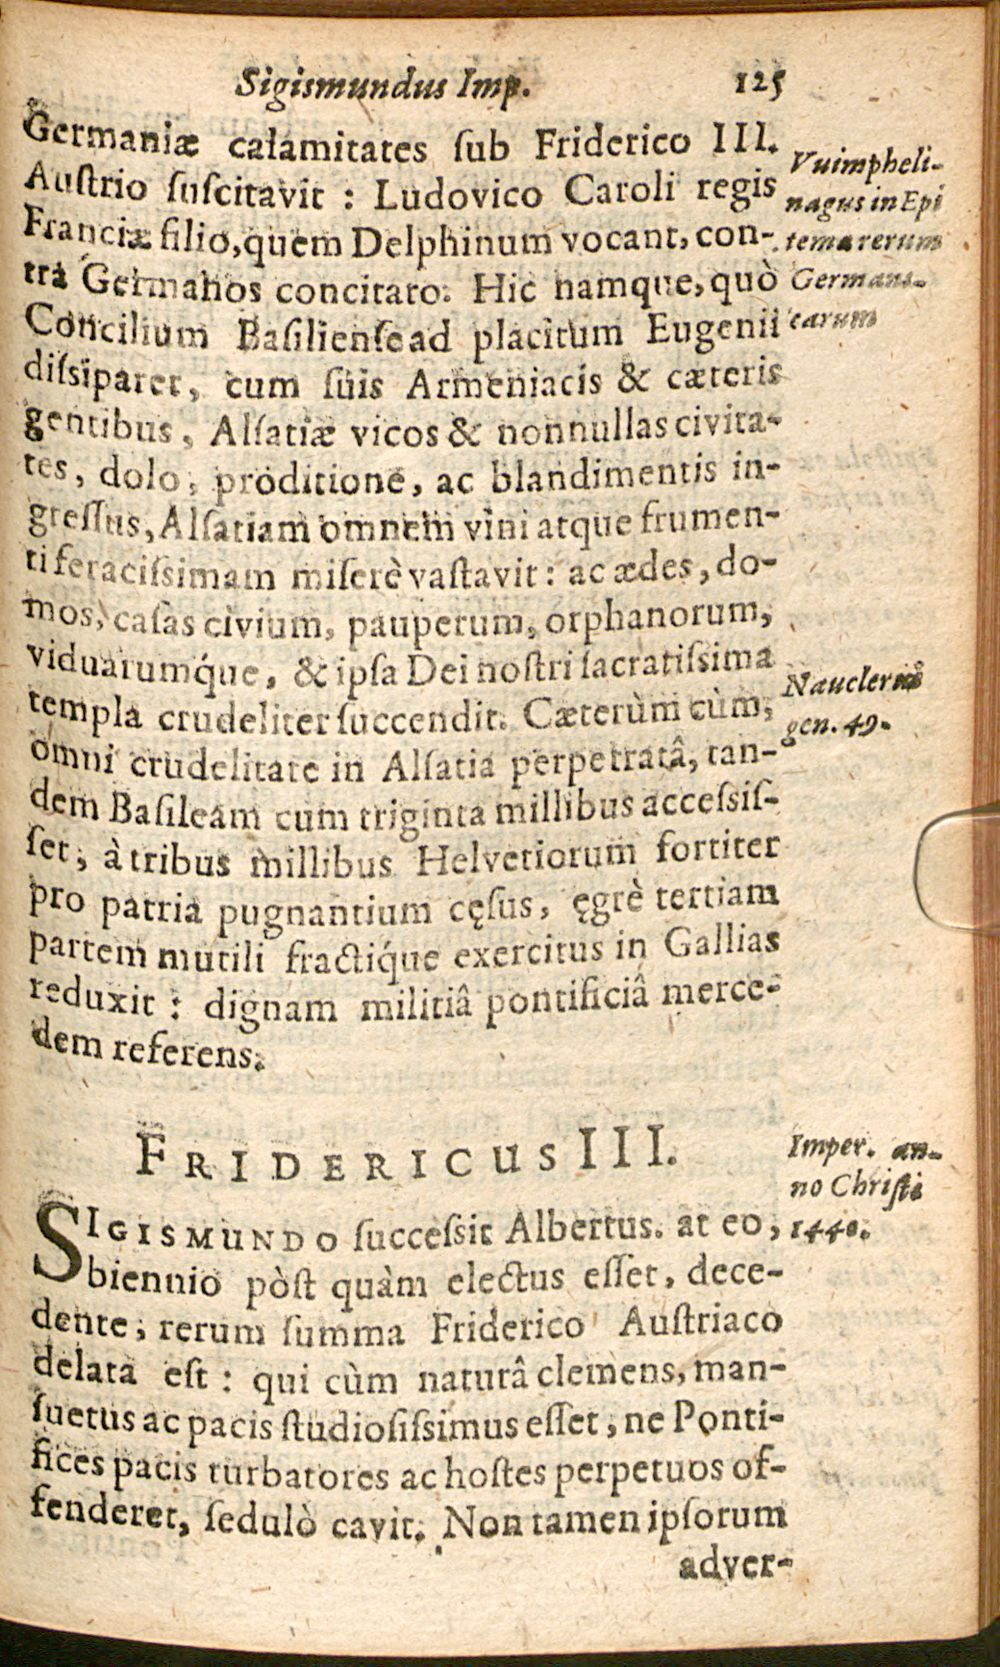 Sigismundus Imp. 125
Germaniæ calamitates ſub Friderico III.
Auſtrio ſuſcitavit : Ludovico Caroli regis
Franciæ filio, quem Delphinum vocant, con-
tra Germanos concitato. Hic namque, quò
Concilium Baſilienſe ad placitum Eugenii
diſsiparet, cum ſuis Armeniacis & cæteris
gentibus, Alſatiæ vicos & nonnullas civita-
tes, dolo, proditione, ac blandimentis in-
greſſus, Alſatiam omnem vini atque frumen-
ti feraciſsimam miſerè vaſtavit : ac ædes, do-
mos, caſas civium, pauperum, orphanorum,
viduarumq́ue, & ipſa Dei noſtri ſacratiſsima
templa crudeliter ſuccendit. Cæterùm cùm,
omni crudelitate in Alſatia perpetratâ, tan-
dem Baſileam cum triginta millibus acceſsiſ-
ſet, à tribus millibus Helvetiorum fortiter
pro patria pugnantium cęſus, ęgrè tertiam
partem mutili fractiq́ue exercitus in Gallias
reduxit : dignam militiâ pontificiâ merce-
dem referens.
Vuimpheli-
nagus in Epi
tema rerum
Germani-
carum
Nauclerus
gen. 49.
FRIDERICUS III.
SIGISMUNDO ſucceſsit Albertus. at eo,
biennio pòſt quàm electus eſſet, dece-
dente, rerum ſumma Friderico Auſtriaco
delata eſt : qui cùm naturâ clemens, man-
ſuetus ac pacis ſtudioſiſsimus eſſet, ne Ponti-
fices pacis turbatores ac hoſtes perpetuos of-
fenderet, ſedulò cavit. Non tamen ipſorum
adver-
Imper. an-
no Chriſti
1440.